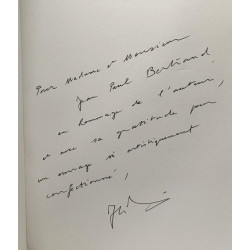 Pour Madame et Monsieur
Jean Paul Bertrand
en hommage de l'auteur
et avec sa gratitude pour
un ouvrage si artistiquement
confectionné,